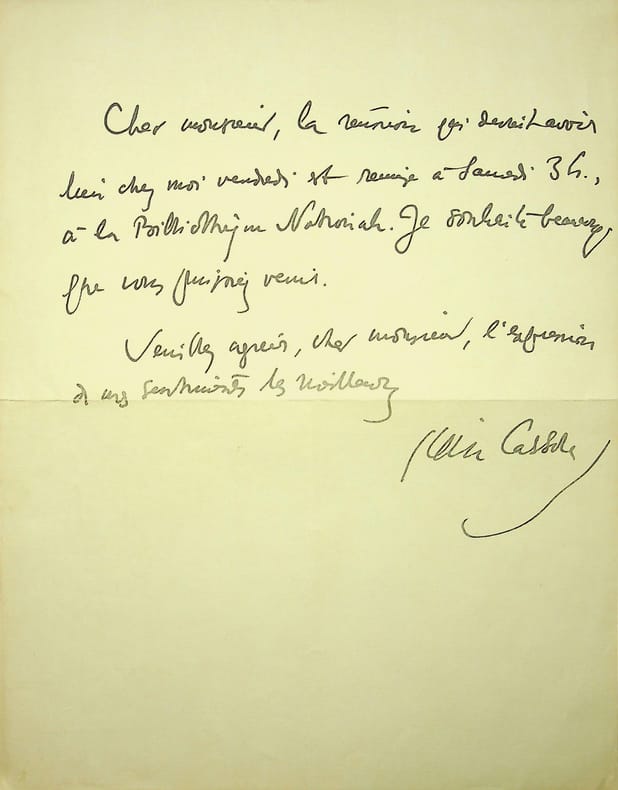 Cher monsieur, la réunion qui devait avoir
lieu chez moi vendredi est remise à Samedi 3h.,
à la Bibliothèque Nationale. Je souhaite beaucoup
que vous puissiez venir.
Veuillez agréer, cher monsieur, l'expression
de mes sentiments les meilleurs
Jean Cassou